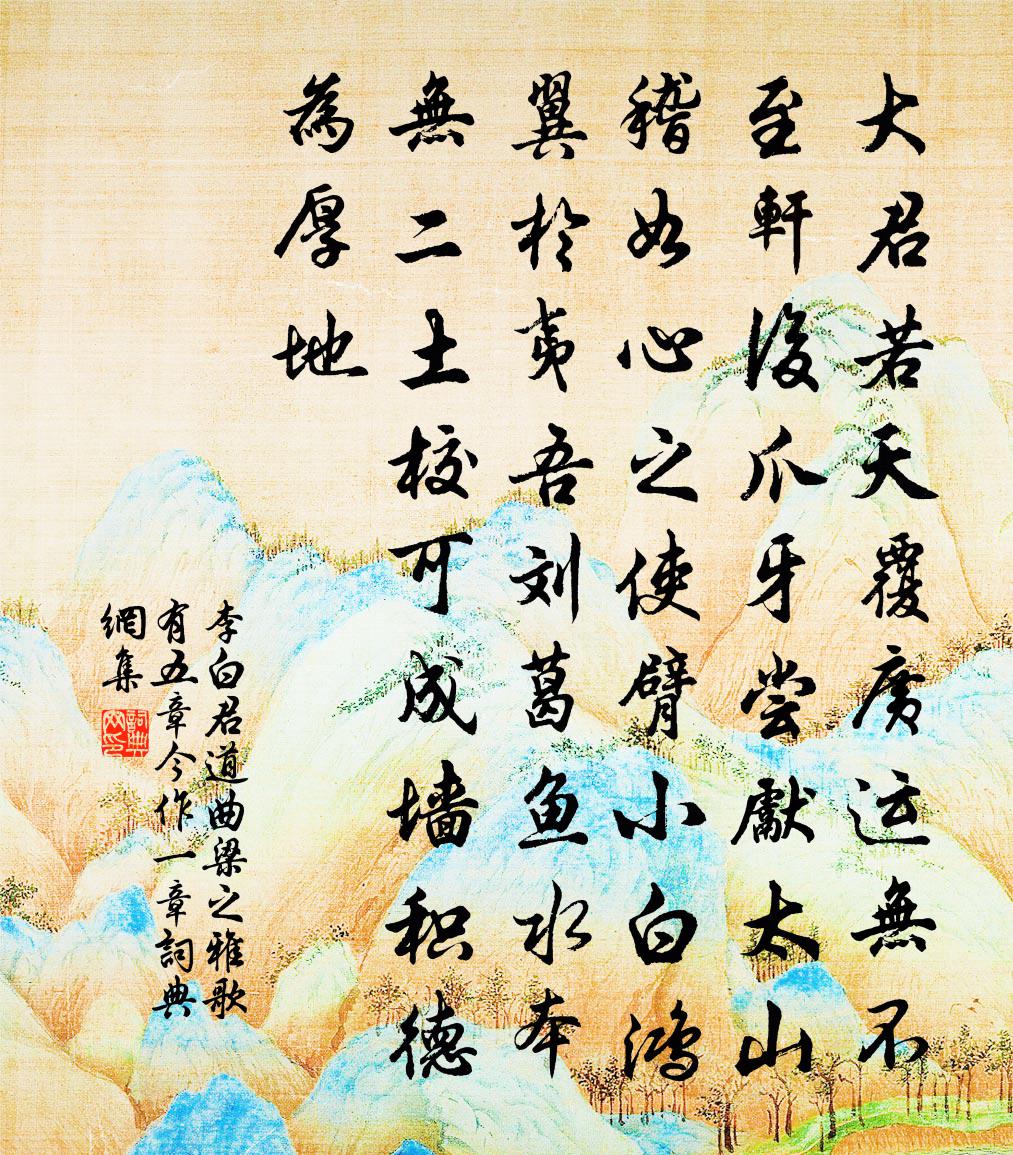 大君若天覆廣运無不
至軒後爪牙尝獻太山
稽如心之使臂小白鸿
翼於夷吾刘葛鱼水本
無二土校可成墙积德
為厚地
李白君道曲梁之雅歌
有五章今作一章詞典
網集
詞典網印